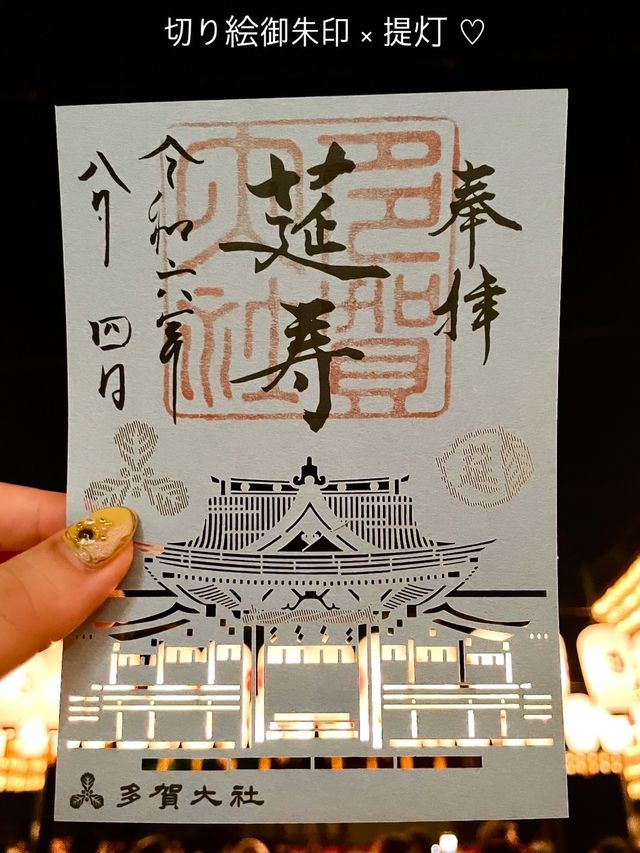 切り絵御朱印 × 提灯 ♡
奉拝
多賀大社
莚寿
令和六年
八月四日
多賀大社